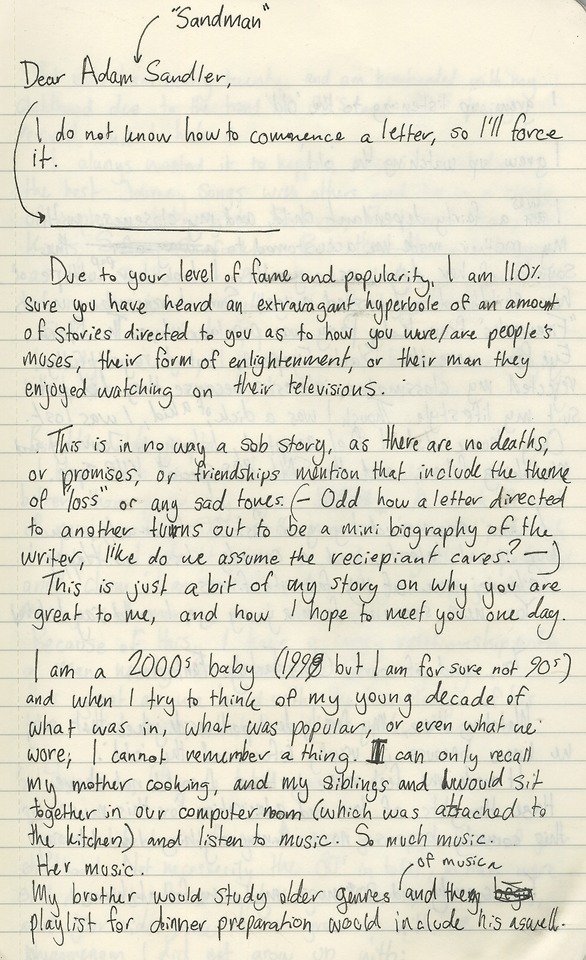 "Sandman"
Dear Adam Sandler,
I do not know how to commence a letter, so I'll force
it.
Due to your level of fame and popularity, I am 110%
sure you have heard an extravagant hyperbole of an amount
of stories directed to you as to how you were/are people's
muses, their form of enlightenment, or their man they
enjoyed watching on their televisions.
This is in no way a sob story, as there are no deaths,
or promises, or friendships mention that include the theme
of "loss" or any sad tones. (— Odd how a letter directed
to another turns out to be a mini biography of the
writer, like do we assume the reciepiant cares? —)
This is just a bit of my story on why you are
great to me, and how I hope to meet you one day.
I am a 2000s baby (1998 but I am for sure not 90s)
and when I try to think of my young decade of
what was in, what was popular, or even what we
wore, I cannot remember a thing. I can only recall
my mother cooking, and my siblings and I would sit
together in our computer room (which was attached to
the kitchen) and listen to music. So much music.
Her music.
of music
My brother would study older genres and the
playlist for dinner preparation would include his aswell.